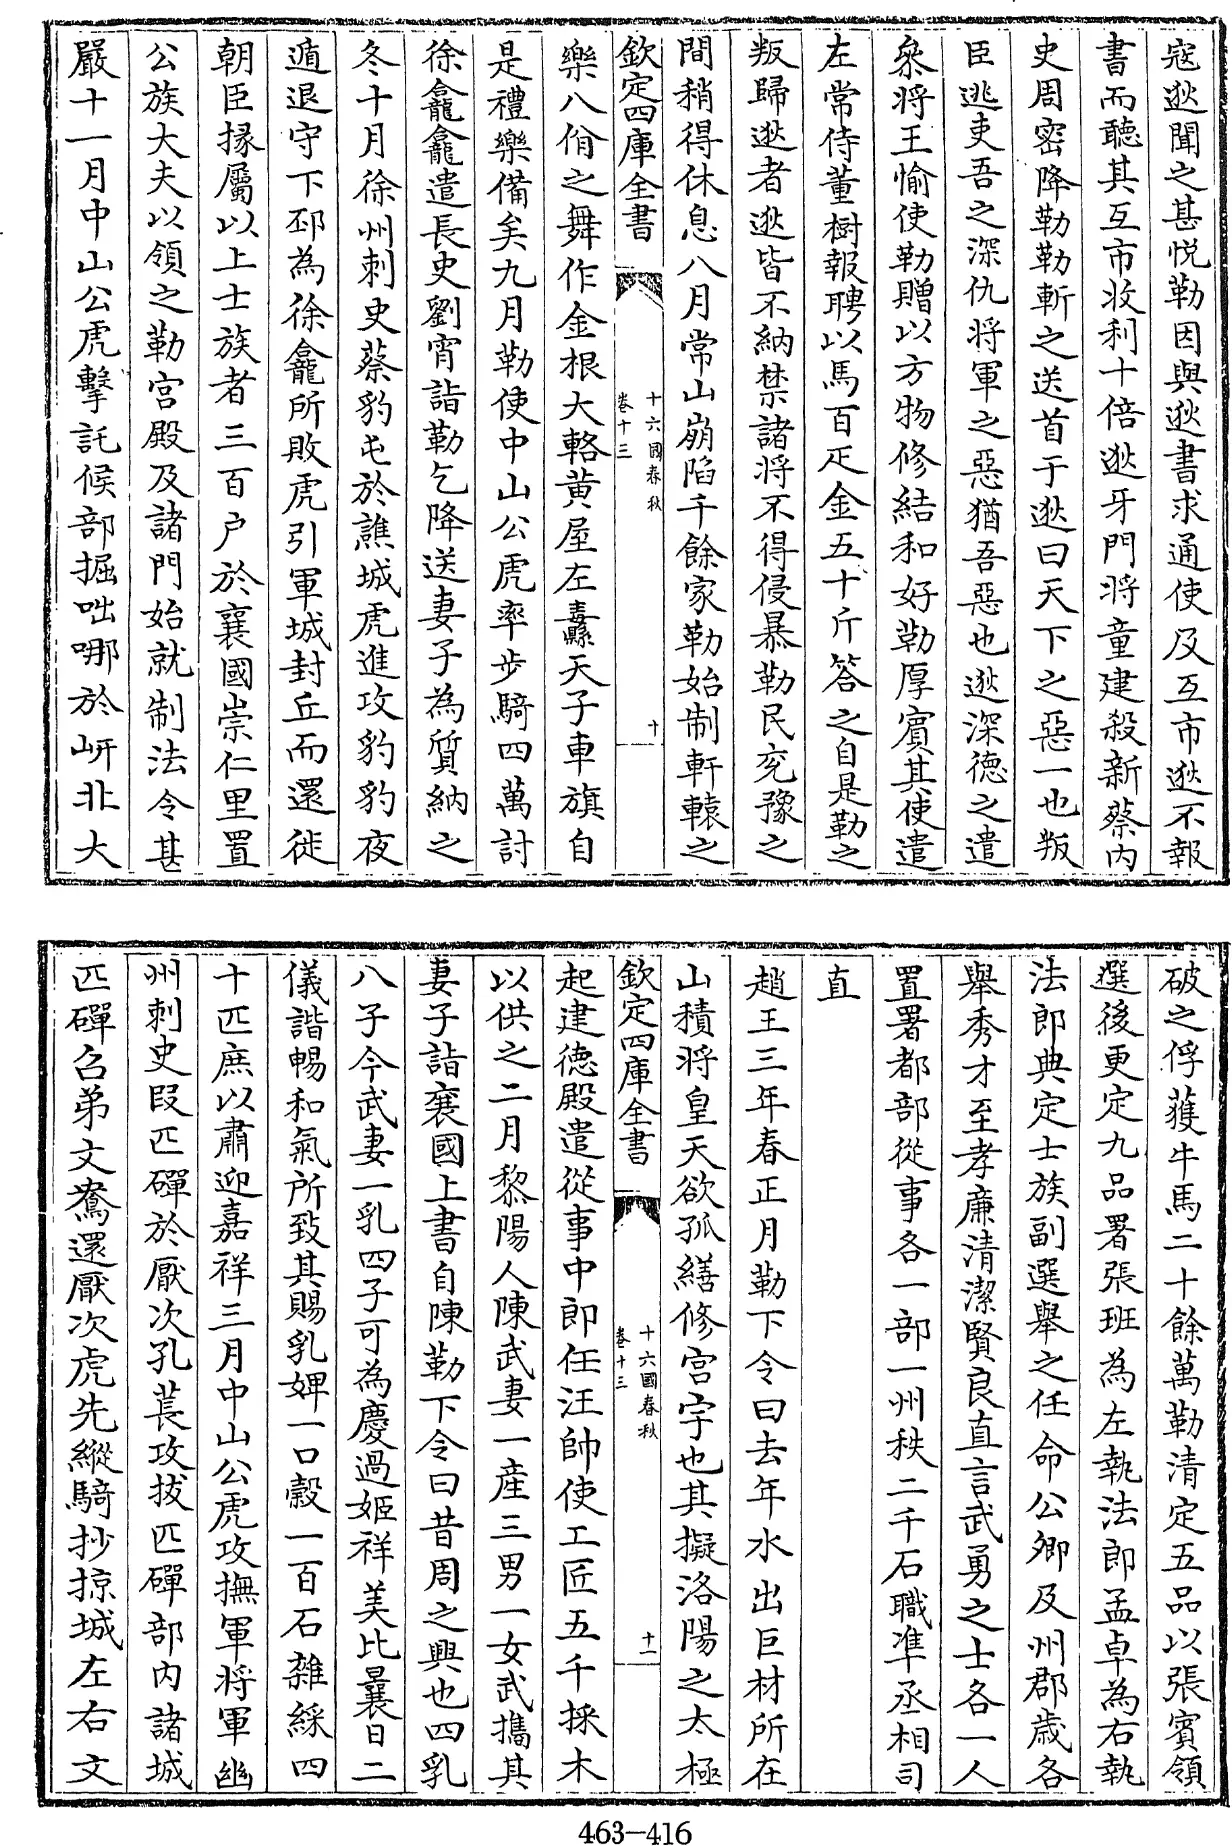 寇逖聞之甚悅勒因與逖書求通使及互市逖不報
書而聽其互市收利十倍逖牙門將童建殺新蔡內
史周密降勒勒斬之送首于逖曰天下之惡一也叛
臣逃吏吾之深仇將軍之惡猶吾惡也逖深德之遣
叅將王愉使勒贈以方物修結和好勒厚賓其使遣
左常侍董樹報聘以馬百疋金五十斤答之自是勒之
叛歸逖者逖皆不納禁諸將不得侵暴勒民兖豫之
間稍得休息八月常山崩陷千餘家勒始制軒轅之
欽定四庫全書
十六國春秋
卷十三
十
樂八佾之舞作金根大輅黄屋左纛天子車旗自
是禮樂備矣九月勒使中山公虎率步騎四萬討
徐龕龕遣長史劉宵詣勒乞降送妻子為質納之
冬十月徐州刺史蔡豹屯於譙城虎進攻豹豹夜
遁退守下邳為徐龕所敗虎引軍城封丘而還徙
朝臣掾屬以上士族者三百户於襄國崇仁里置
公族大夫以領之勒宫殿及諸門始就制法令甚
嚴十一月中山公虎擊託候部掘咄哪於岍北大
破之俘獲牛馬二十餘萬勒清定五品以張賓領
選後更定九品署張班為左執法郎孟卓為右執
法郎典定士族副選舉之任命公卿及州郡歲各
舉秀才至孝廉清潔賢良直言武勇之士各一人
置署都部從事各一部一州秩二千石職凖丞相司
直
趙王三年春正月勒下令曰去年水出巨材所在
山積將皇天欲孤繕修宫宇也其擬洛陽之太極
欽定四庫全書
十六國春秋
卷十三
十一
起建德殿遣從事中郎任汪帥使工匠五千採木
以供之二月黎陽人陳武妻一產三男一女武攜其
妻子詣襄國上書自陳勒下令曰昔周之興也四乳
八子今武妻一乳四子可為慶過姬祥美比曩日二
儀諧暢和氣所致其賜乳婢一口穀一百石雜綵四
十匹庶以肅迎嘉祥三月中山公虎攻撫軍將軍幽
州刺史段匹磾於厭次孔萇攻拔匹磾部内諸城
匹磾召弟文鴦還厭次虎先縱騎抄掠城左右文
463-416